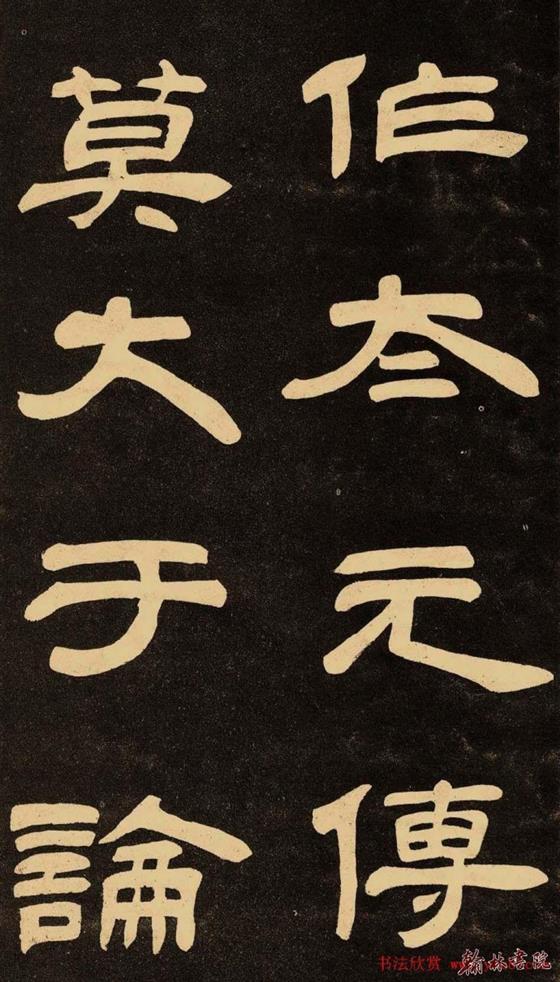 作夳元傳
莫大于論
书法欣赏
翰林书院